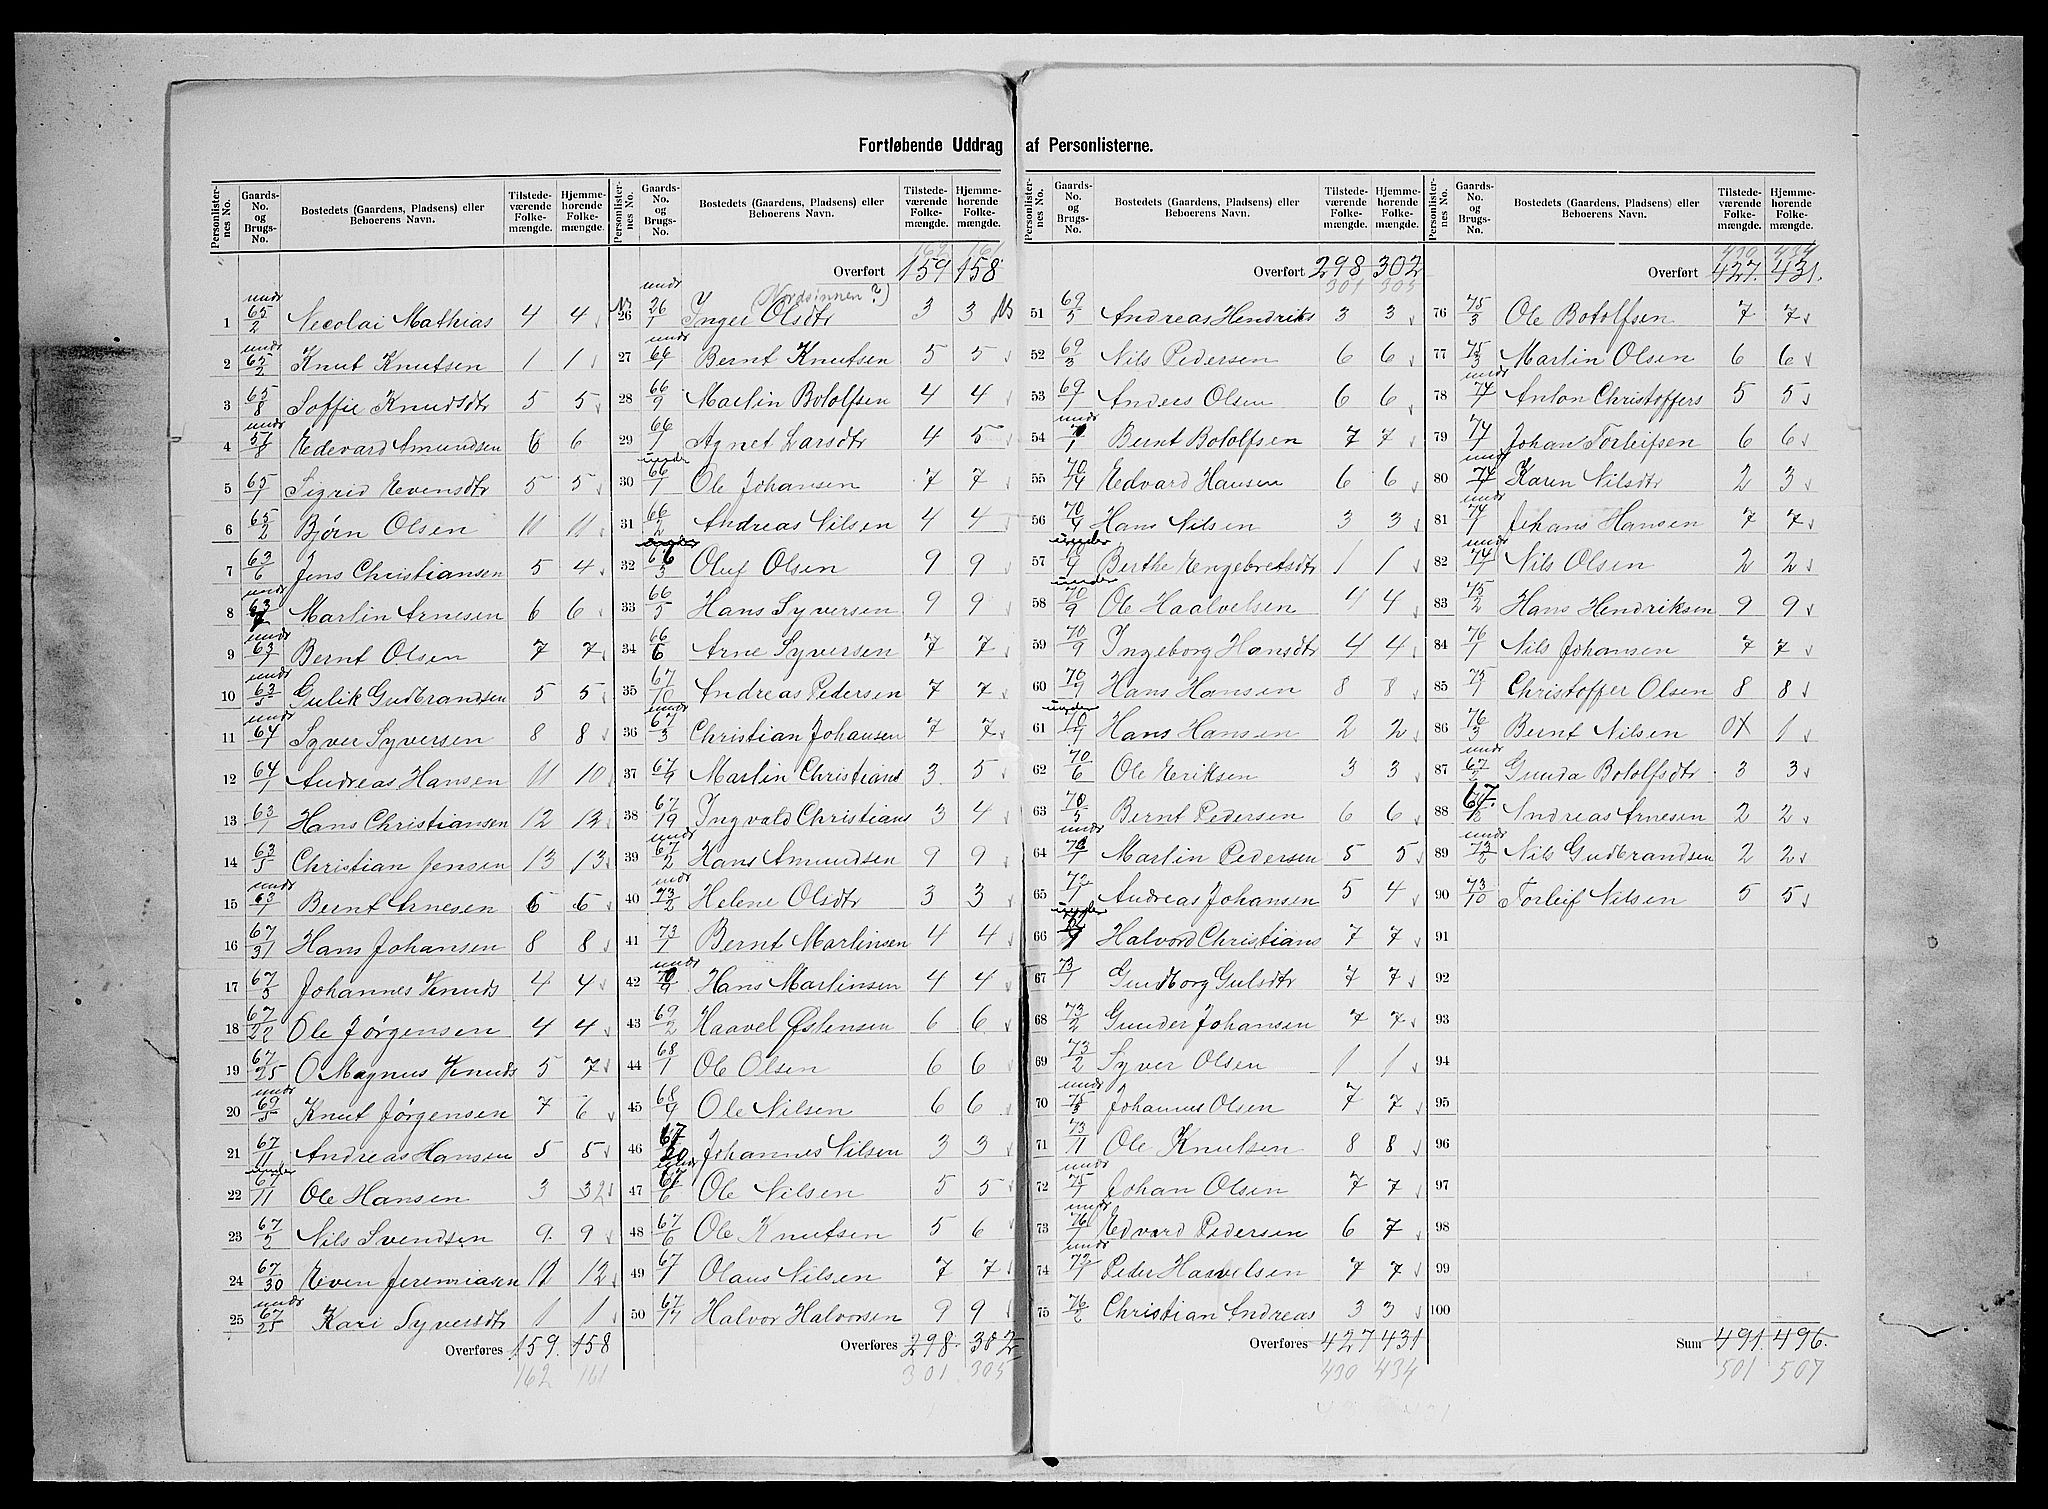 Fortløbende Uddrag af Personlisterne.
Personlisternes No. Gaards-No. og Brugs-No. Bostedets (Gaardens, Pladsens) eller Beboerens Navn. Tilstedeværende Folkemængde. Hjemmehørende Folkemængde.
1 undr 65/2 Necolai Mathias 4 4
2 undr 65/2 Knut Knutsen 1 1
3 65/8 Soffie Knudsdtr 5 5
4 undr 51/8 Edevard Amundsen 6 6
5 65/1 Sigrid Evensdtr 5 5
6 65/2 Bjørn Olsen 11 11
7 63/6 Jens Christiansen 5 4
8 undr 63/7 Martin Arnesen 6 6
9 undr 63/1 Bernt Olsen 7 7
10 undr 63/5 Gulik Gudbrandsen 5 5
11 undr 64/1 Syver Syversen 8 8
12 64/1 Andreas Hansen 11 10
13 63/1 Hans Christiansen 12 12
14 63/5 Christian Jensen 13 13
15 undr 63/1 Bernt Arnesen 6 6
16 67/31 Hans Johansen 8 8
17 67/5 Johannes Knuds 4 4
18 67/22 Ole Jørgensen 4 4
19 67/25 O Magnus Knuds 5 7
20 undr 69/5 Knut Jørgensen 7 6
21 67/11 Andreas Hansen 5 5
22 under 67/11 Ole Hansen 3 32
23 67/2 Nils Svendsen 9 9
24 67/30 Even Jeremiasen 11 12
25 undr 67/25 Kari Syversdtr 1 1
Overføres 159. 158
162 161
Personlisternes No. Gaards-No. og Brugs-No. Bostedets (Gaardens, Pladsens) eller Beboerens Navn. Tilstedeværende Folkemængde. Hjemmehørende Folkemængde.
162 161
Overført 159 158
(Nordsinnen?)
26 undr 26/1 Inger Olsdtr 3 3
27 undr 66/1 Bernt Knutsen 5 5
28 66/9 Martin Botolfsen 4 4
29 66/1 Agnet Larsdtr 4 5
30 under 66/1 Ole Johansen 7 7
31 66/2 Andreas Nilsen 4 4
32 66/5 Oluf Olsen 9 9
33 66/5 Hans Syversen 9 9
34 66/6 Arne Syversen 7 7
35 67/10 Andreas Pedersen 7 7
36 undr 67/3 Christian Johansen 7 7
37 67/9 Martin Christians 3 5
38 67/19 Ingvald Christians 3 4
39 undr 67/2 Hans Amundsen 9 9
40 undr 73/2 Helene Olsdtr 3 3
41 73/1 Bernt Martinsen 4 4
42 undr 70/9 Hans Martinsen 4 4
43 69/2 Haavel Østensen 6 6
44 68/1 Ole Olsen 6 6
45 68/9 Ole Nilsen 6 6
46 67/20 Johannes Nilsen 3 3
47 67/6 Ole Nilsen 5 5
48 67/6 Ole Knutsen 5 6
49 67/1 Olaus Nilsen 7 7
50 67/17 Halvor Halvorsen 9 9
Overføres 298. 302
301 305
Personlisternes No. Gaards-No. og Brugs-No. Bostedets (Gaardens, Pladsens) eller Beboerens Navn. Tilstedeværende Folkemængde. Hjemmehørende Folkemængde.
Overført 298 302
301 305
51 69/5 Andreas Hendriks 3 3
52 69/3 Nils Pedersen 6 6
53 69/1 Anders Olsen 6 6
54 undr Bernt Botolfsen 7 7
55 70/14 Edvard Hansen 6 6
56 70/9 Hans Nilsen 3 3
57 under 70/9 Berthe Engebretsdtr 1 1
58 under 70/9 Ole Haalvelsen 4 4
59 70/9 Ingeborg Hansdtr 4 4
60 70/9 Hans Hansen 8 8
61 under 70/9 Hans Hansen 2 2
62 70/6 Ole Eriksen 3 3
63 70/5 Bernt Pedersen 6 6
64 undr Martin Pedersen 5 5
65 72/1 Andreas Johansen 5 4
66 under Halvord Christians 7 7
67 73/1 Gudborg Gulsdtr 7 7
68 73/2 Gunder Johansen 7 7
69 73/2 Syver Olsen 1 1
70 undr 75/3 Johannes Olsen 7 7
71 73/11 Ole Knutsen 8 8
72 undr 75/1 Johan Olsen 7 7
73 undr 76/1 Edvard Pedersen 6 7
74 undr 72/1 Peder Haavelsen 7 7
75 76/2 Christian Andreas 3 3
Overføres 427 431
430 434
Personlisternes No. Gaards-No. og Brugs-No. Bostedets (Gaardens, Pladsens) eller Beboerens Navn. Tilstedeværende Folkemængde. Hjemmehørende Folkemængde.
430 434
Overført 427. 431.
76 75/3 Ole Botolfsen 7 7
77 75/3 Martin Olsen 6 6
78 undr 74/1 Anton Christoffers 5 5
79 74/1 Johan Torleifsen 6 6
80 undr 74/1 Karen Nilsdtr 2 3
81 undr 74/1 Johans Hansen 7 7
82 undr 74/1 Nils Olsen 2 2
83 75/2 Hans Hendriksen 9 9
84 76/1 Nils Johansen 7 7
85 75/1 Christoffer Olsen 8 8
86 76/3 Bernt Nilsen 0X 1
87 undr 67/2 Gunda Botolfsdtr 3 3
88 67. Andreas Arnesen 2 2
89 undr 73/2 Nils Gudbrandsen 2 2
90 73/10 Torleif Nilsen 5 5
91
92
93
94
95
96
97
98
99
100
Sum 491. 496.
501 507